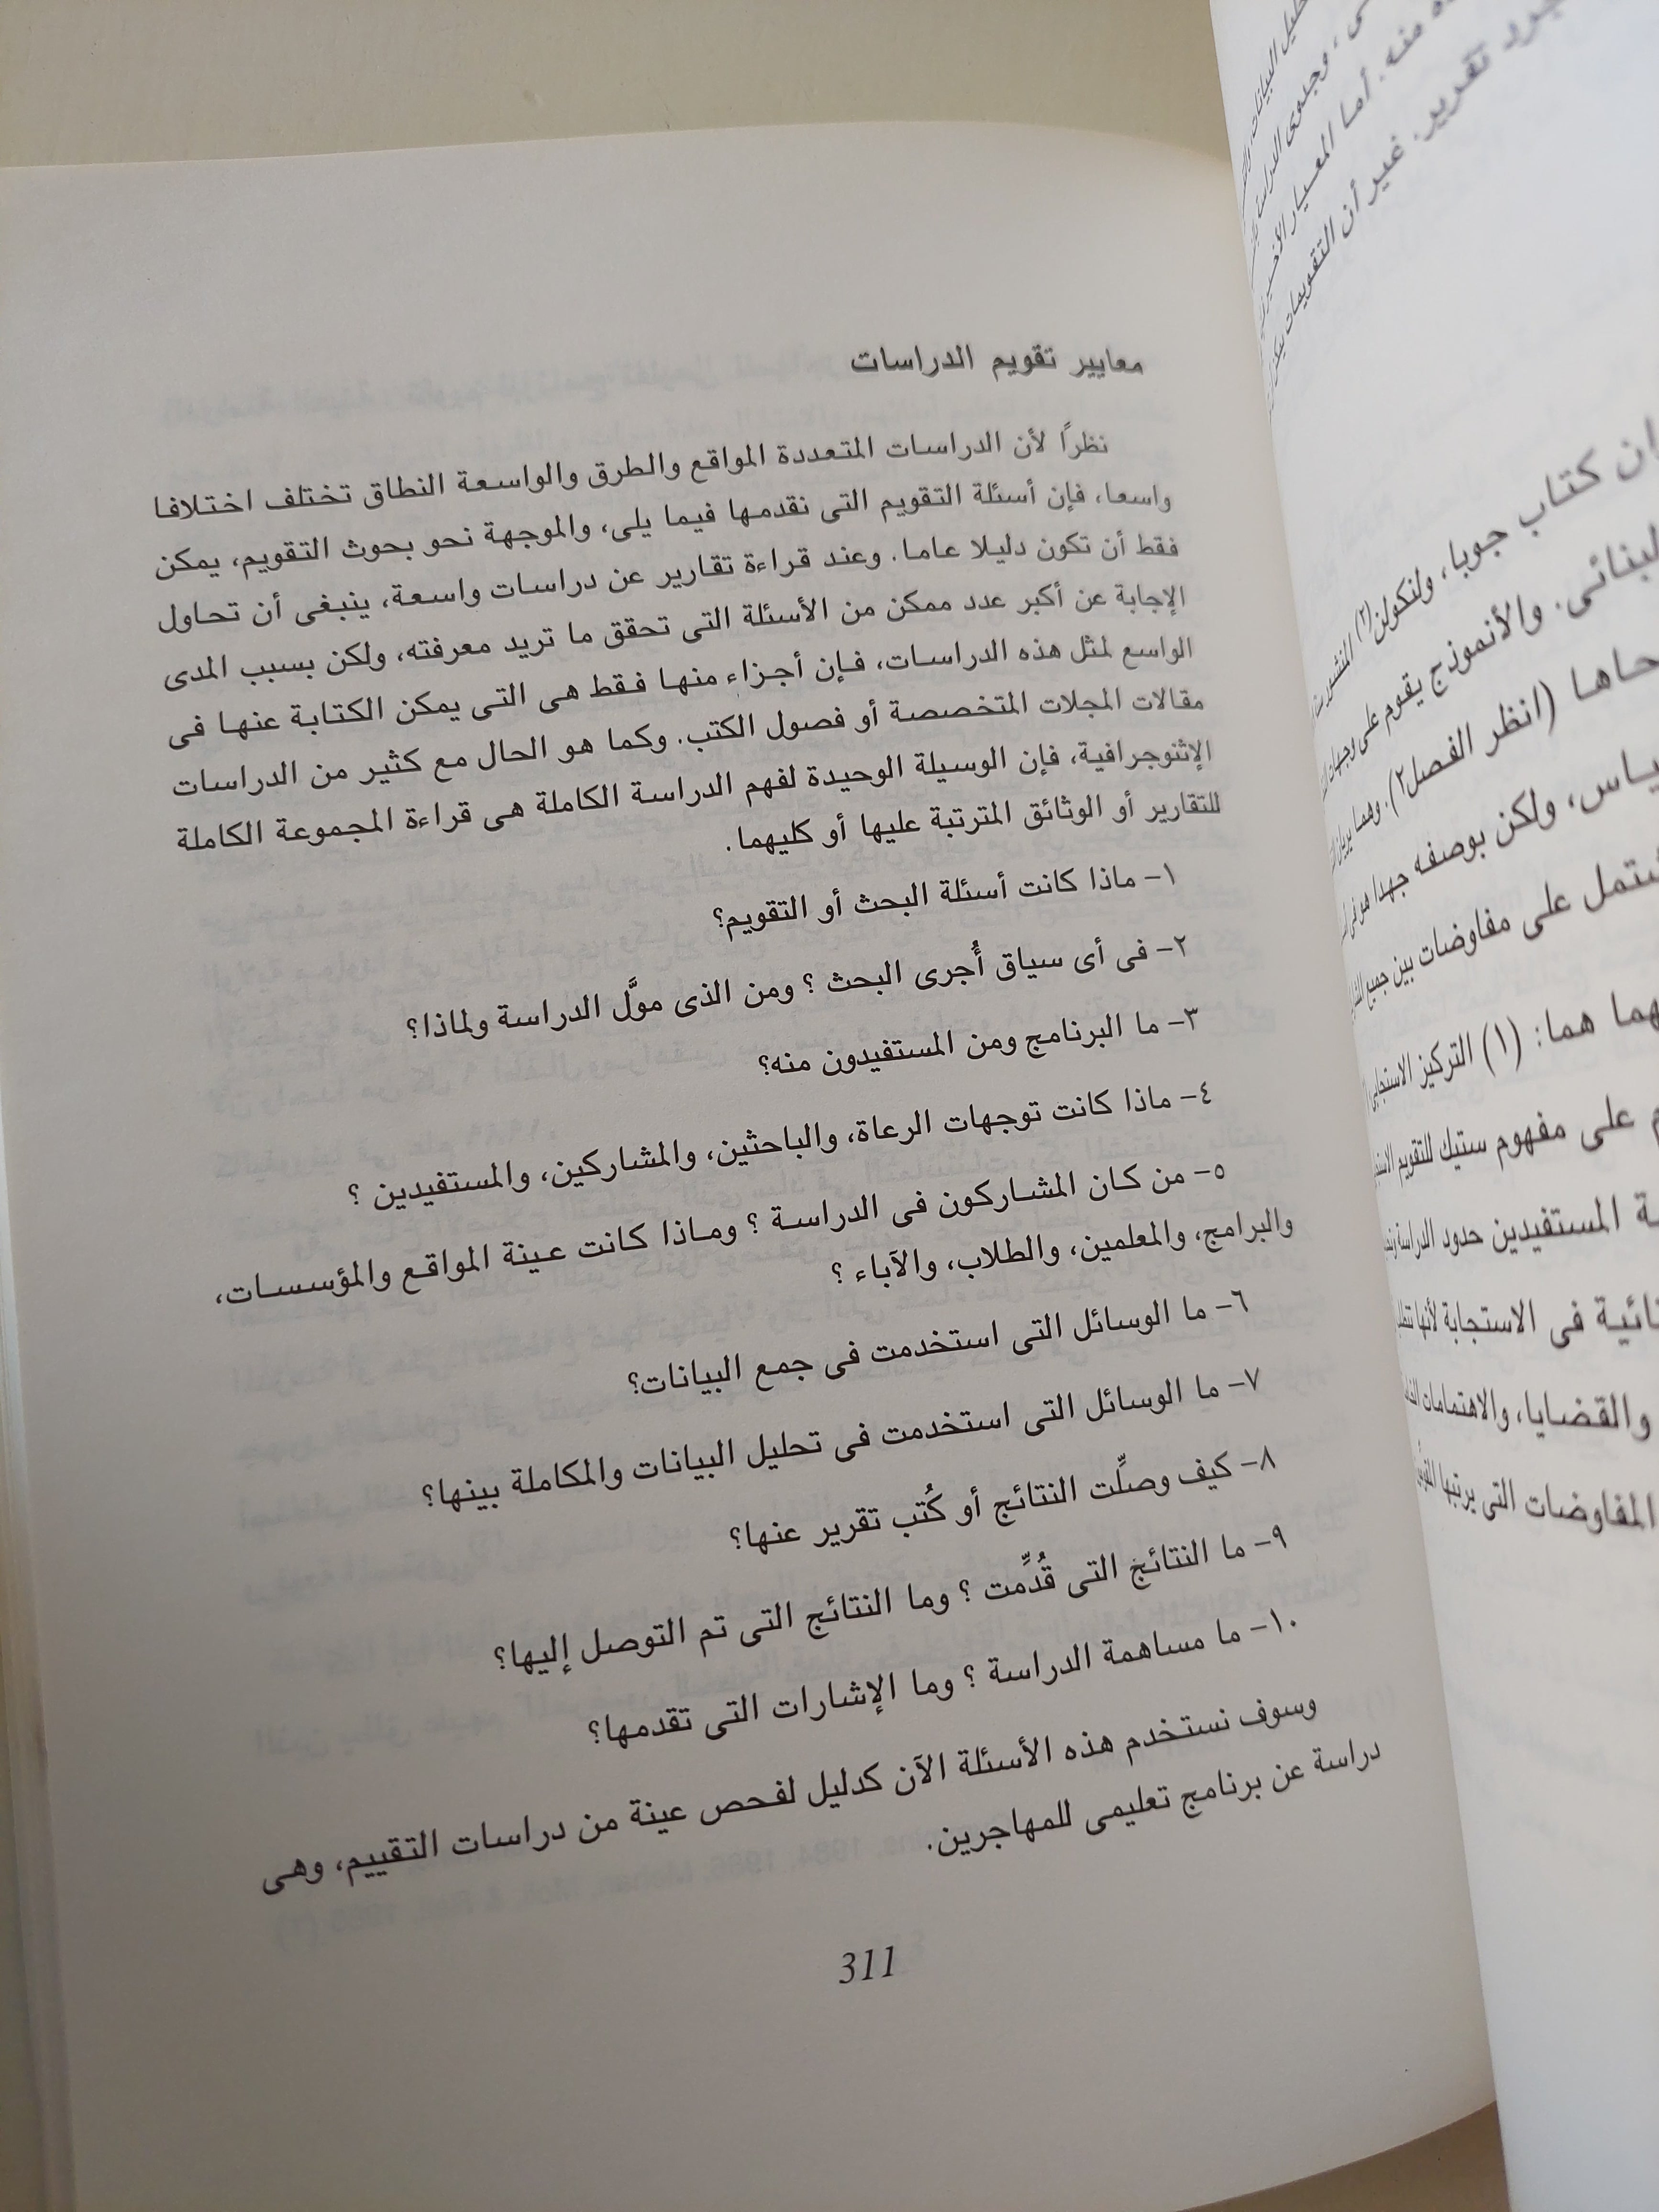 معايير تقويم الدراسات
نظراً لأن الدراسات المتعددة المواقع والطرق والواسعة النطاق تختلف اختلافا
واسعا، فإن أسئلة التقويم التى نقدمها فيما يلى، والموجهة نحو بحوث التقويم، يمكن
فقط أن تكون دليلا عاما. وعند قراءة تقارير عن دراسات واسعة، ينبغى أن تحاول
الإجابة عن أكبر عدد ممكن من الأسئلة التى تحقق ما تريد معرفته، ولكن بسبب المدى
الواسع لمثل هذه الدراسات، فإن أجزاء منها فقط هى التى يمكن الكتابة عنها فى
مقالات المجلات المتخصصة أو فصول الكتب. وكما هو الحال مع كثير من الدراسات
الإثنوجرافية، فإن الوسيلة الوحيدة لفهم الدراسة الكاملة هى قراءة المجموعة الكاملة
للتقارير أو الوثائق المترتبة عليها أو كليهما.
١- ماذا كانت أسئلة البحث أو التقويم؟
٢- فى أى سياق أُجرى البحث ؟ ومن الذى موَّل الدراسة ولماذا؟
٣- ما البرنامج ومن المستفيدون منه؟
٤- ماذا كانت توجهات الرعاة، والباحثين، والمشاركين، والمستفيدين ؟
٥- من كان المشاركون فى الدراسة ؟ وماذا كانت عينة المواقع والمؤسسات،
والبرامج، والمعلمين، والطلاب، والآباء ؟
٦- ما الوسائل التى استخدمت فى جمع البيانات؟
٧- ما الوسائل التى استخدمت فى تحليل البيانات والمكاملة بينها؟
٨- كيف وصلِّت النتائج أو كُتب تقرير عنها؟
٩- ما النتائج التى قُدِّمت ؟ وما النتائج التى تم التوصل إليها؟
١٠- ما مساهمة الدراسة ؟ وما الإشارات التى تقدمها؟
وسوف نستخدم هذه الأسئلة الآن كدليل لفحص عينة من دراسات التقييم، وهى
دراسة عن برنامج تعليمى للمهاجرين.
311
منه. أما المعيار
تقرير. غير أن التقويمات
كتاب جوبا، ولنكولن(٢)
والأنموذج يقوم على
(انظر الفصل٢). وهما
ولكن بوصفه جهدا
على مفاوضات بين جميع
هما: (١) التركيز
على مفهوم ستيك للتقويم
المستفيدين حدود الدراسة
فى الاستجابة لأنها
والقضايا، والاهتمامات
المفاوضات التى يرتبها